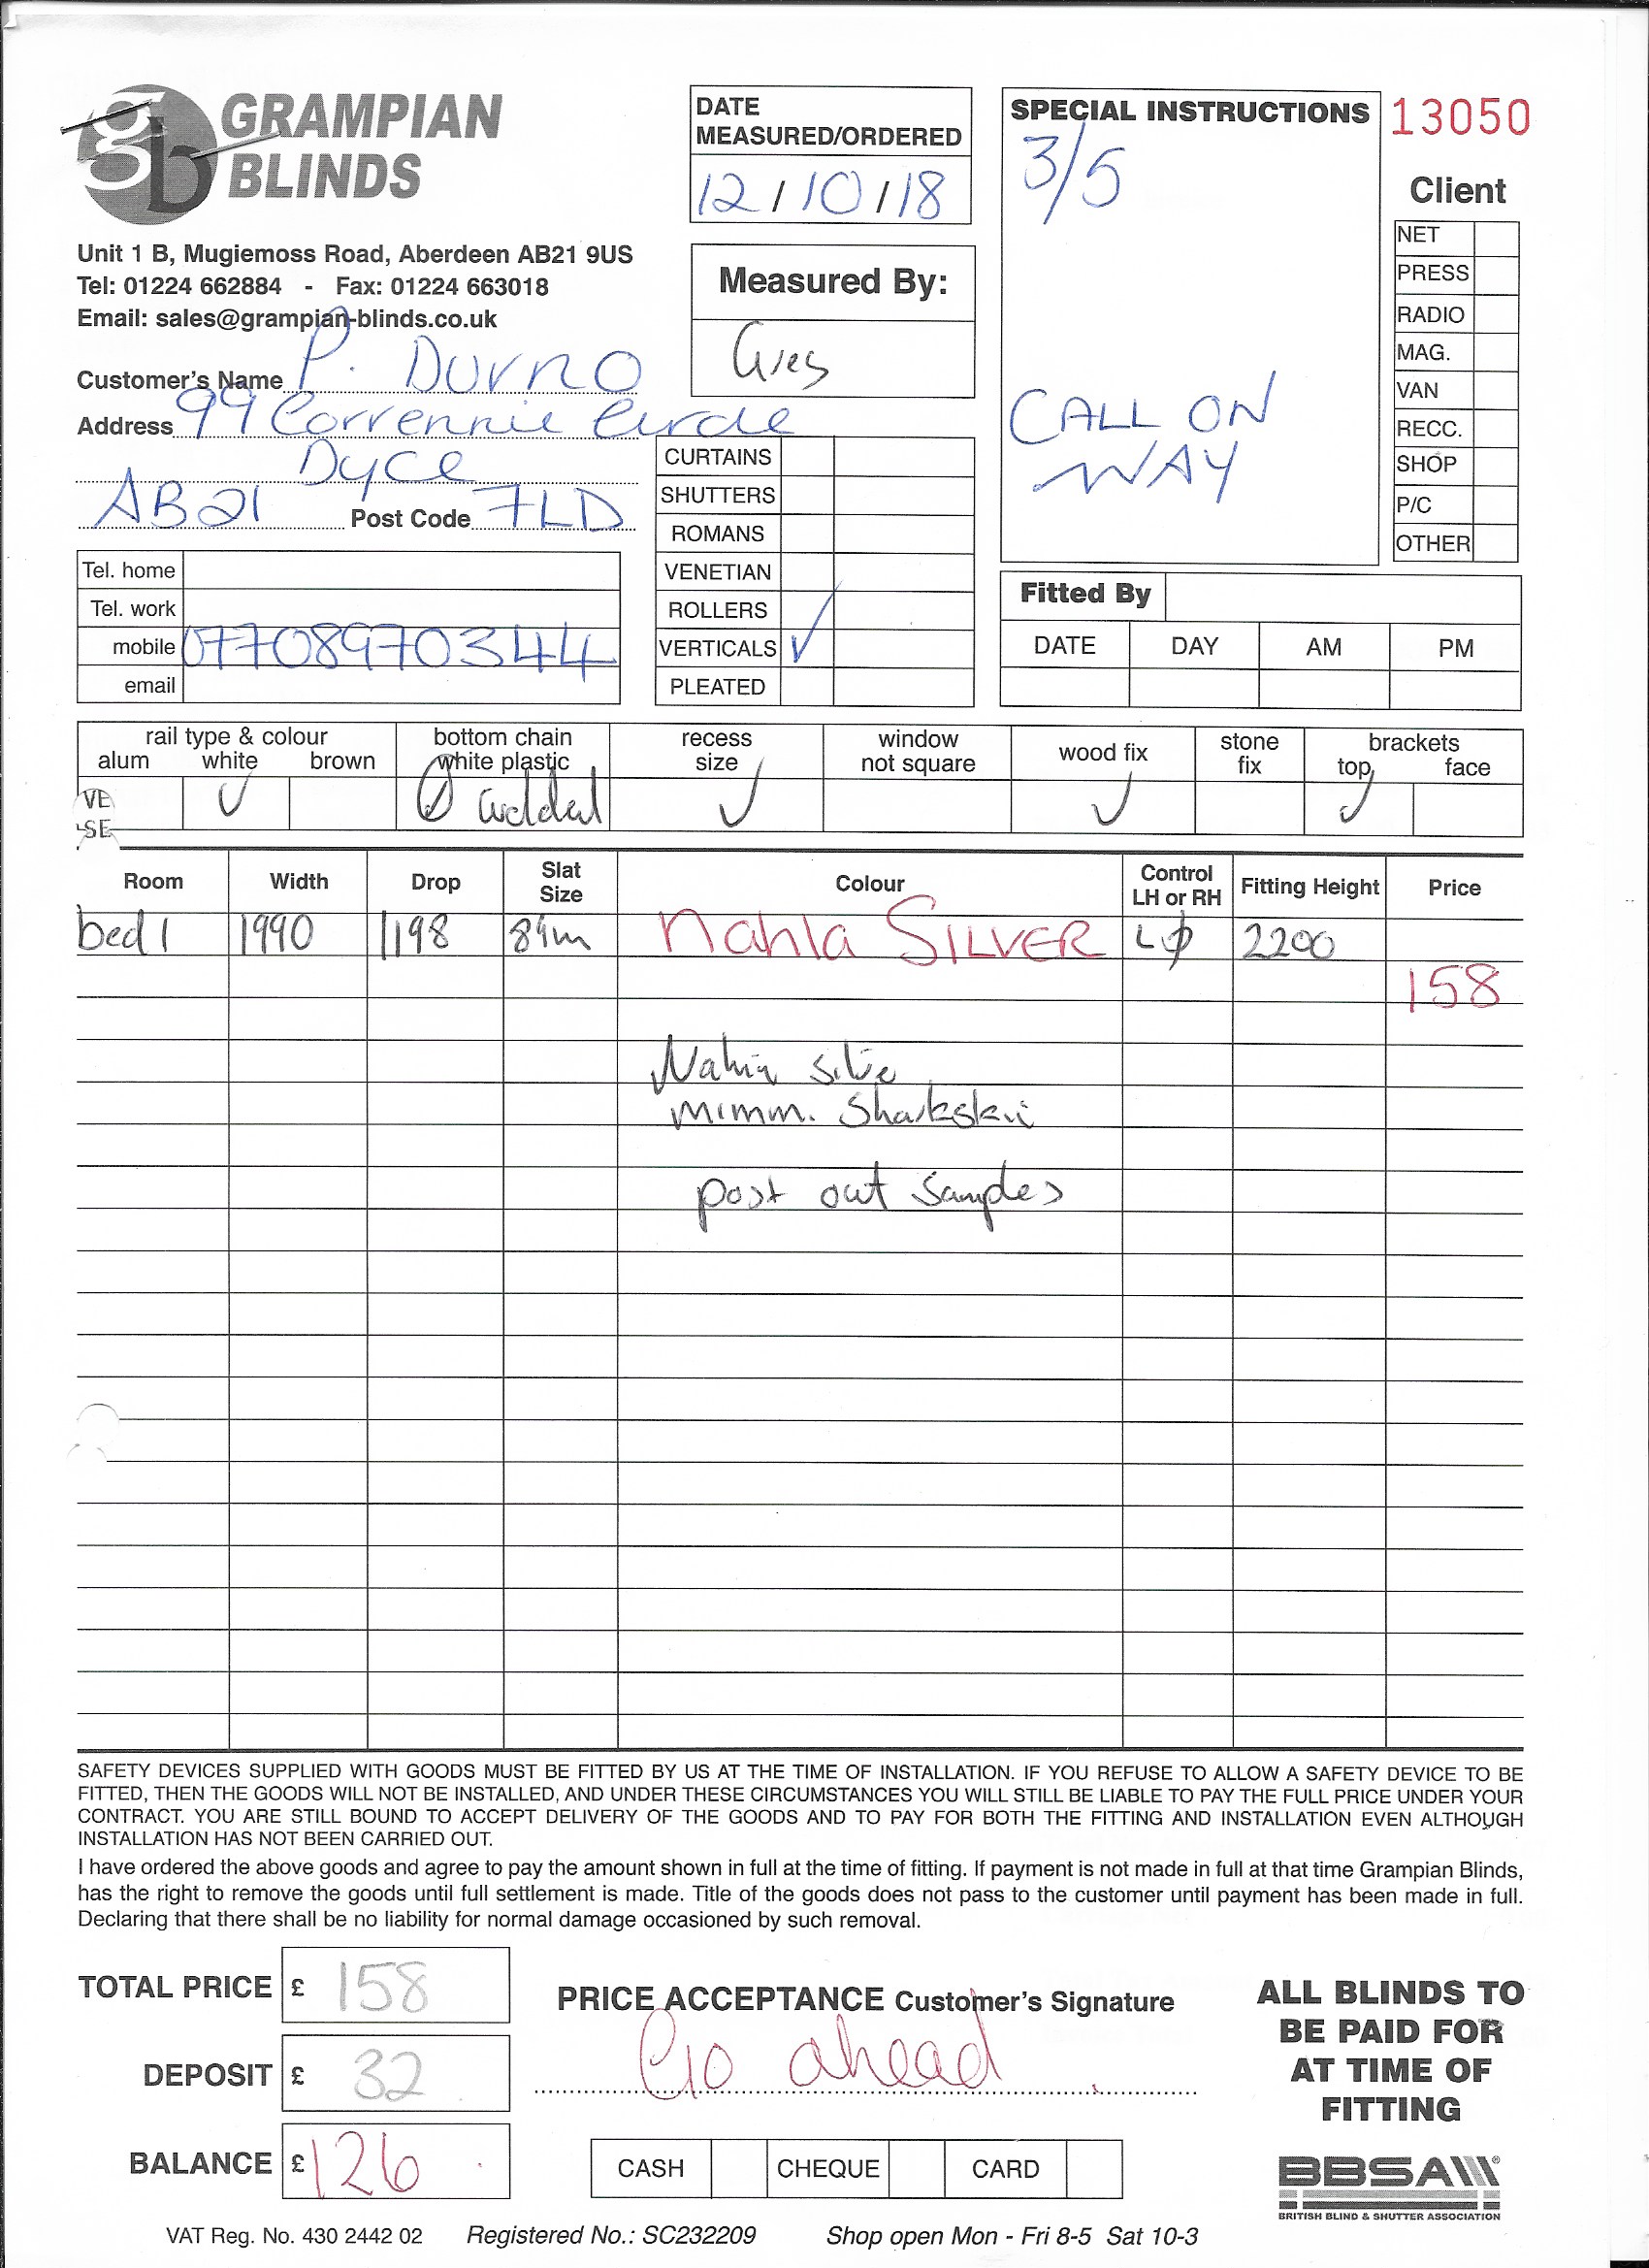 gb GRAMPIAN
BLINDS
Unit 1 B, Mugiemoss Road, Aberdeen AB21 9US
Tel: 01224 662884 - Fax: 01224 663018
Email: sales@grampian-blinds.co.uk
DATE
MEASURED/ORDERED
12/10/18
Measured By:
Greg
SPECIAL INSTRUCTIONS
3/5
CALL ON
WAY
13050
Client
NET
PRESS
RADIO
MAG.
VAN
RECC.
SHOP
P/C
OTHER
Customer's Name P. Durno
Address 99 Corrennie Circle
Dyce
AB21 Post Code 7LD
Tel. home
Tel. work
mobile 07708970344
email
CURTAINS
SHUTTERS
ROMANS
VENETIAN
ROLLERS
VERTICALS ✓
PLEATED
Fitted By
DATE DAY AM PM
rail type & colour bottom chain recess window wood fix stone brackets
alum white brown white plastic size not square fix top face
VE ✓ ✓ welded ✓ ✓ ✓
SE
Room Width Drop Slat Size Colour Control LH or RH Fitting Height Price
bed 1 1990 1198 89m Nahla SILVER L 2200
158
mimm. Sharkskin
post out samples
SAFETY DEVICES SUPPLIED WITH GOODS MUST BE FITTED BY US AT THE TIME OF INSTALLATION. IF YOU REFUSE TO ALLOW A SAFETY DEVICE TO BE
FITTED, THEN THE GOODS WILL NOT BE INSTALLED, AND UNDER THESE CIRCUMSTANCES YOU WILL STILL BE LIABLE TO PAY THE FULL PRICE UNDER YOUR
CONTRACT. YOU ARE STILL BOUND TO ACCEPT DELIVERY OF THE GOODS AND TO PAY FOR BOTH THE FITTING AND INSTALLATION EVEN ALTHOUGH
INSTALLATION HAS NOT BEEN CARRIED OUT.
I have ordered the above goods and agree to pay the amount shown in full at the time of fitting. If payment is not made in full at that time Grampian Blinds,
has the right to remove the goods until full settlement is made. Title of the goods does not pass to the customer until payment has been made in full.
Declaring that there shall be no liability for normal damage occasioned by such removal.
TOTAL PRICE £ 158
DEPOSIT £ 32
BALANCE £ 126
PRICE ACCEPTANCE Customer's Signature
Go ahead
CASH CHEQUE CARD
ALL BLINDS TO
BE PAID FOR
AT TIME OF
FITTING
BBSA
BRITISH BLIND & SHUTTER ASSOCIATION
VAT Reg. No. 430 2442 02 Registered No.: SC232209 Shop open Mon - Fri 8-5 Sat 10-3